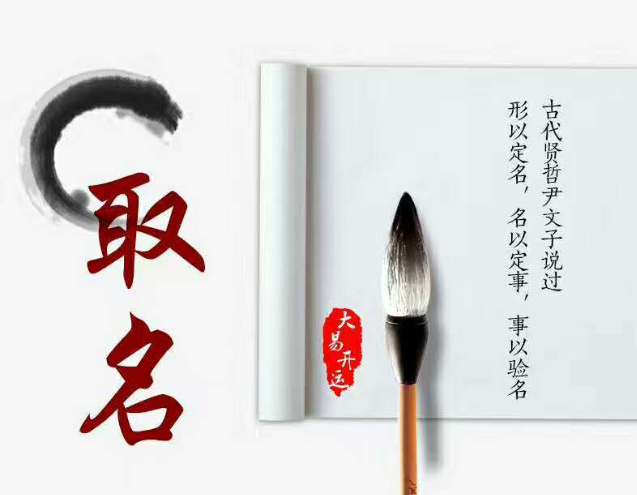 取名
古代贤哲尹文子说过
形以定名，名以定事，事以验名
大易开运